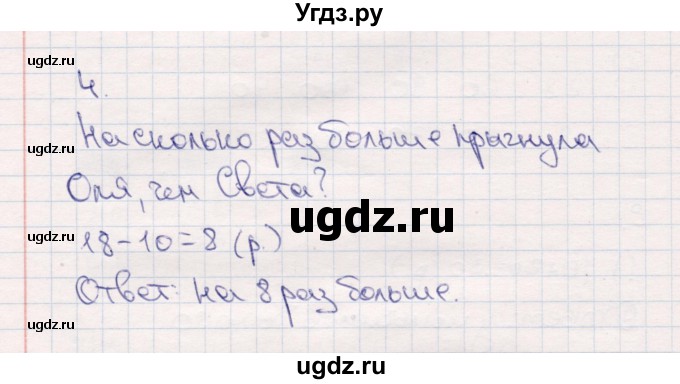 Угдз.ру
ugdz.ru ugdz.ru
4.
На сколько раз больше прыгнула
ugdz.ru
Оля, чем Света?
ugdz.ru
ugdz.ru
18-10=8 (р.)
ugdz.ru
Ответ: на 8 раз больше.
ugdz.ru ugdz.ru
ugdz.ru